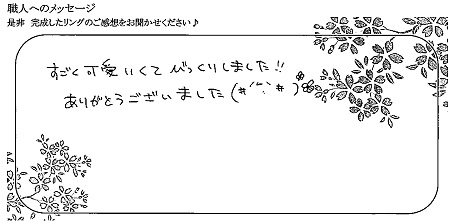 職人へのメッセージ
是非 完成したリングのご感想をお聞かせください♪
すごく可愛いくてびっくりしました!!
ありがとうございました(#´^`#)